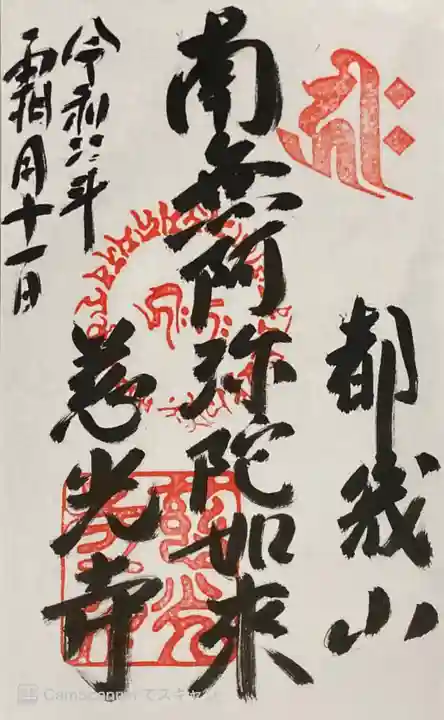 都幾山
南無阿弥陀如来
慈光寺
令和六年
霜月十一日
CamScannerでスキャン